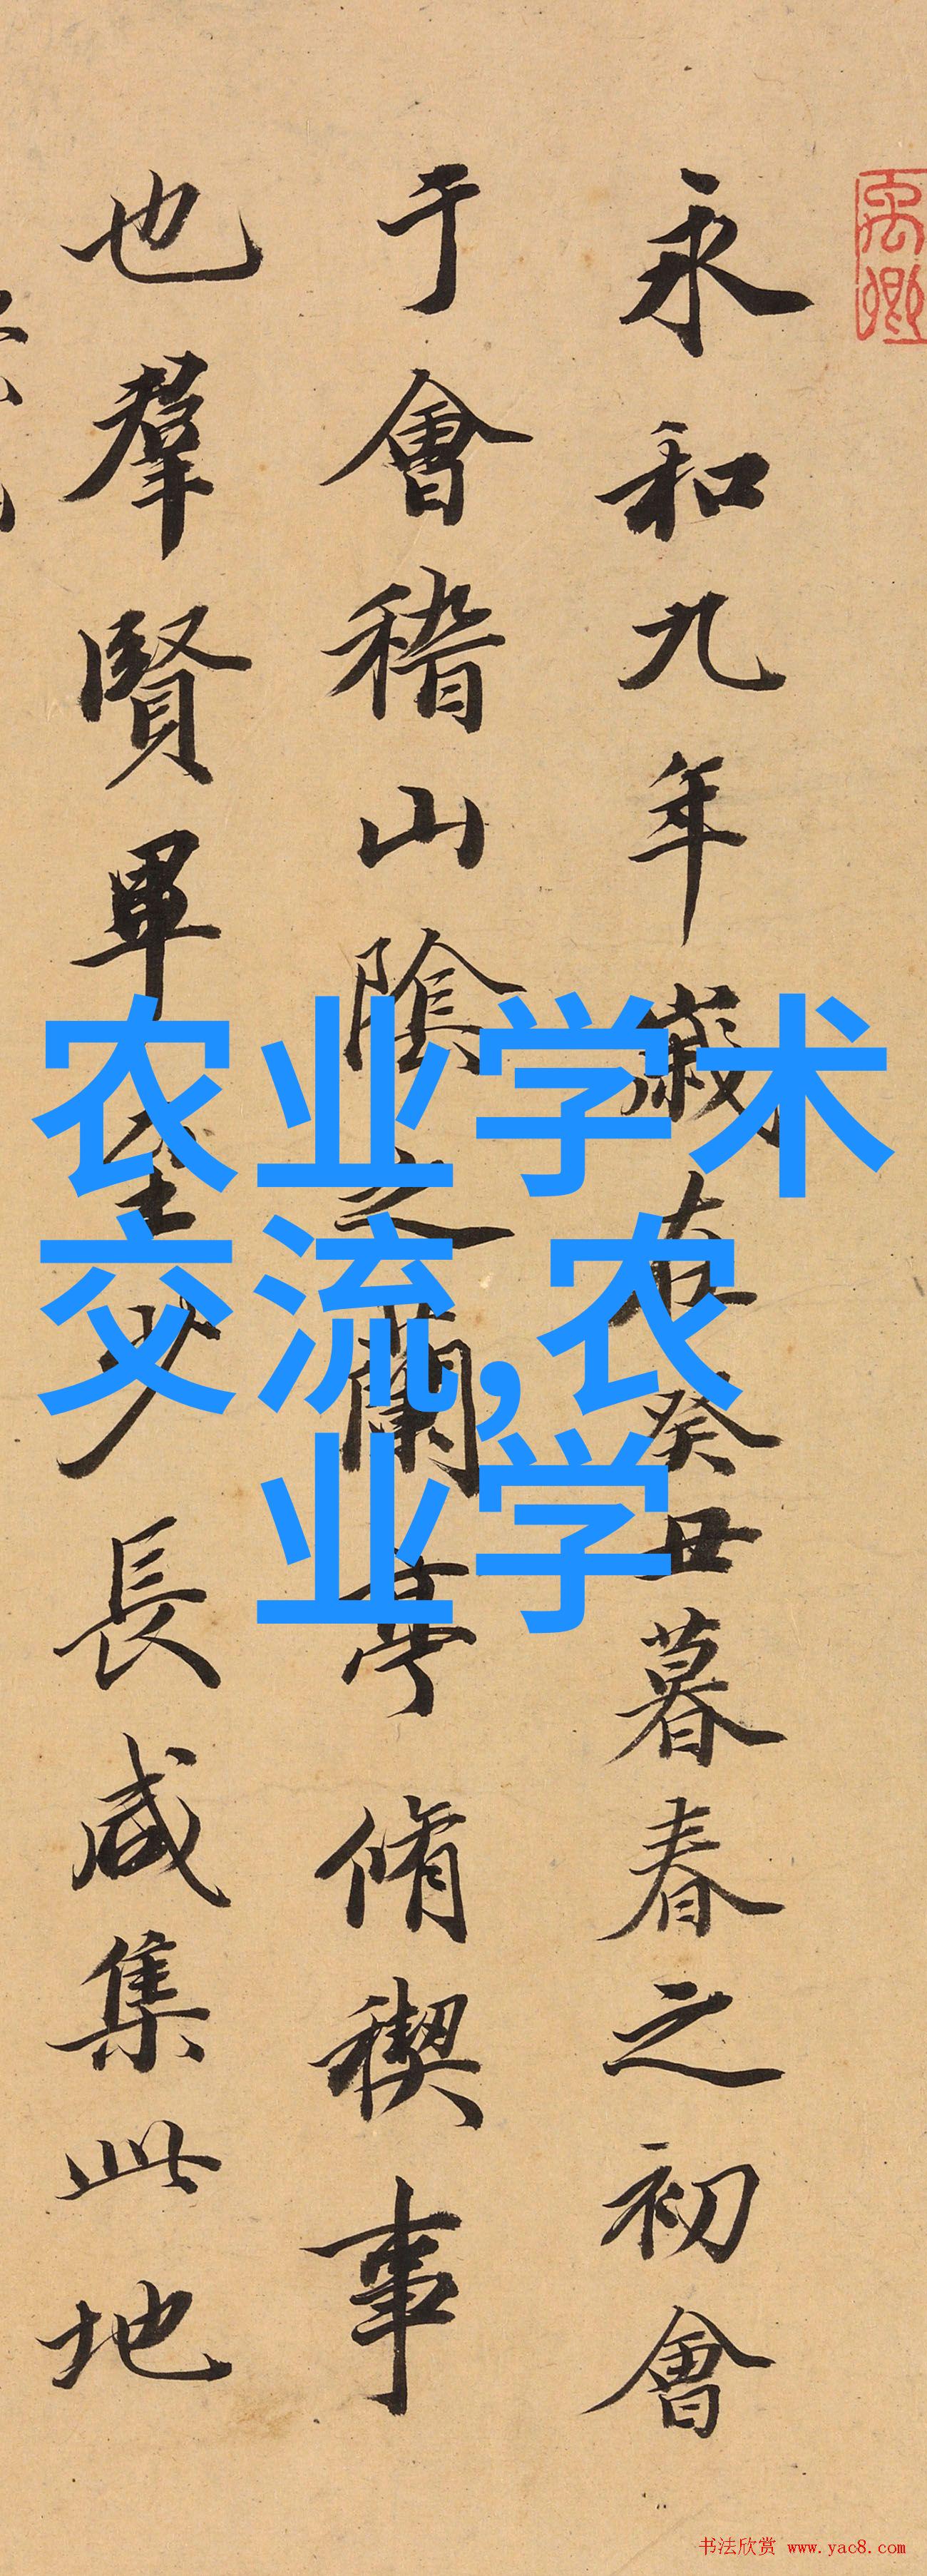 永和九年歲在癸丑暮春之初會
于會稽山陰之蘭亭脩稧事
也羣賢畢至少長咸集此地
农业学术
交流,农
业学
书法欣赏 www.yac8.com